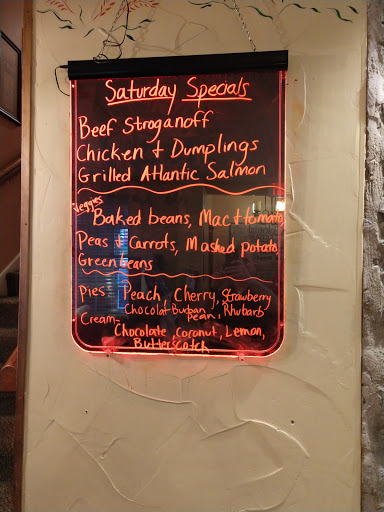 Saturday Specials
Beef Stroganoff
Chicken & Dumplings
Grilled Atlantic Salmon
Veggies
Baked beans, Mac & tomato,
Peas & Carrots, Mashed potato,
Green beans
Pies Peach, Cherry, Strawberry Rhubarb
Chocolat Burban Pecan,
Cream- Chocolate, coconut, Lemon,
Butterscotch